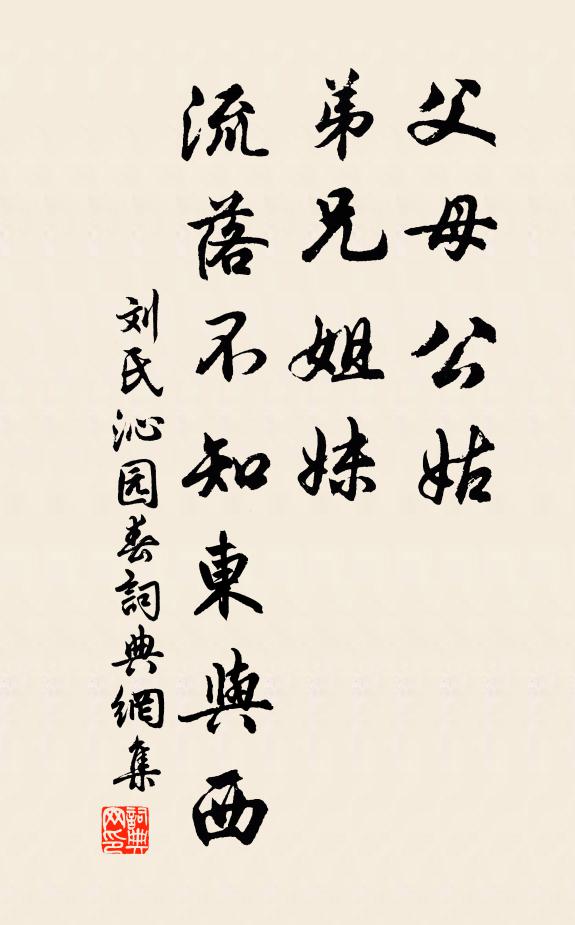 父母公姑
弟兄姐妹
流落不知東與西
刘氏沁园春詞典網集
詞典网印